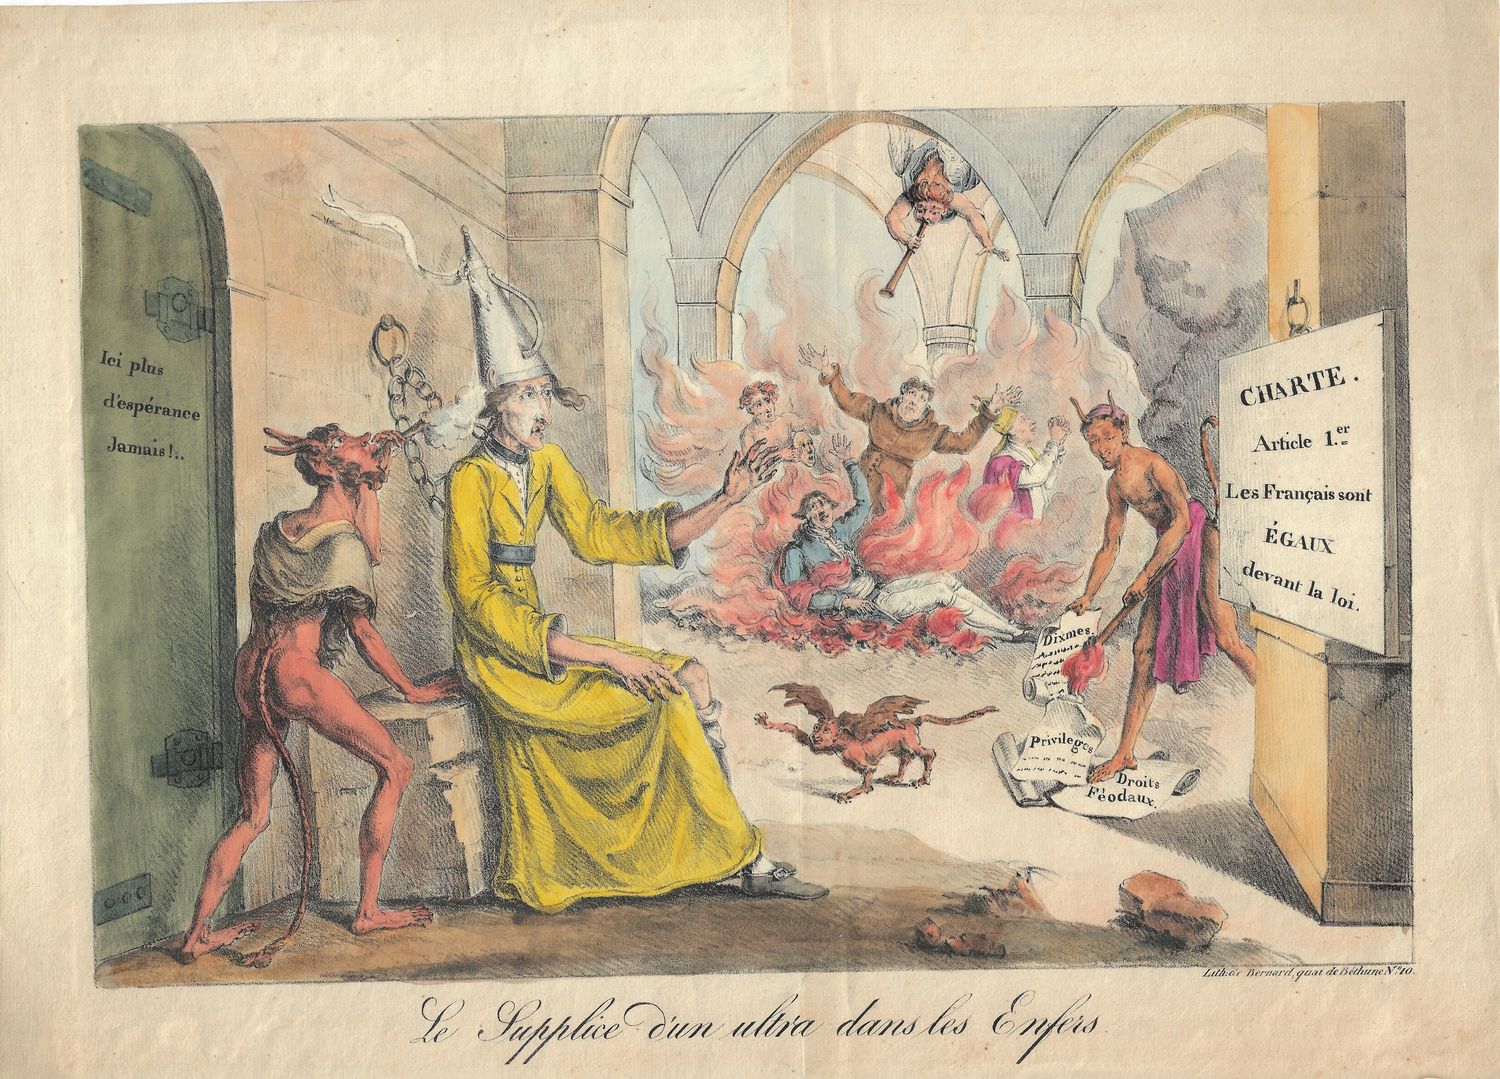 Ici plus
d'espérance
Jamais!..
CHARTE.
Article 1.er
Les Français sont
ÉGAUX
devant la loi.
Dixmes.
Privileges
Droits
Féodaux.
Lith. de Bernard, quai de Béthune N.º 10.
Le Supplice d'un ultra dans les Enfers.